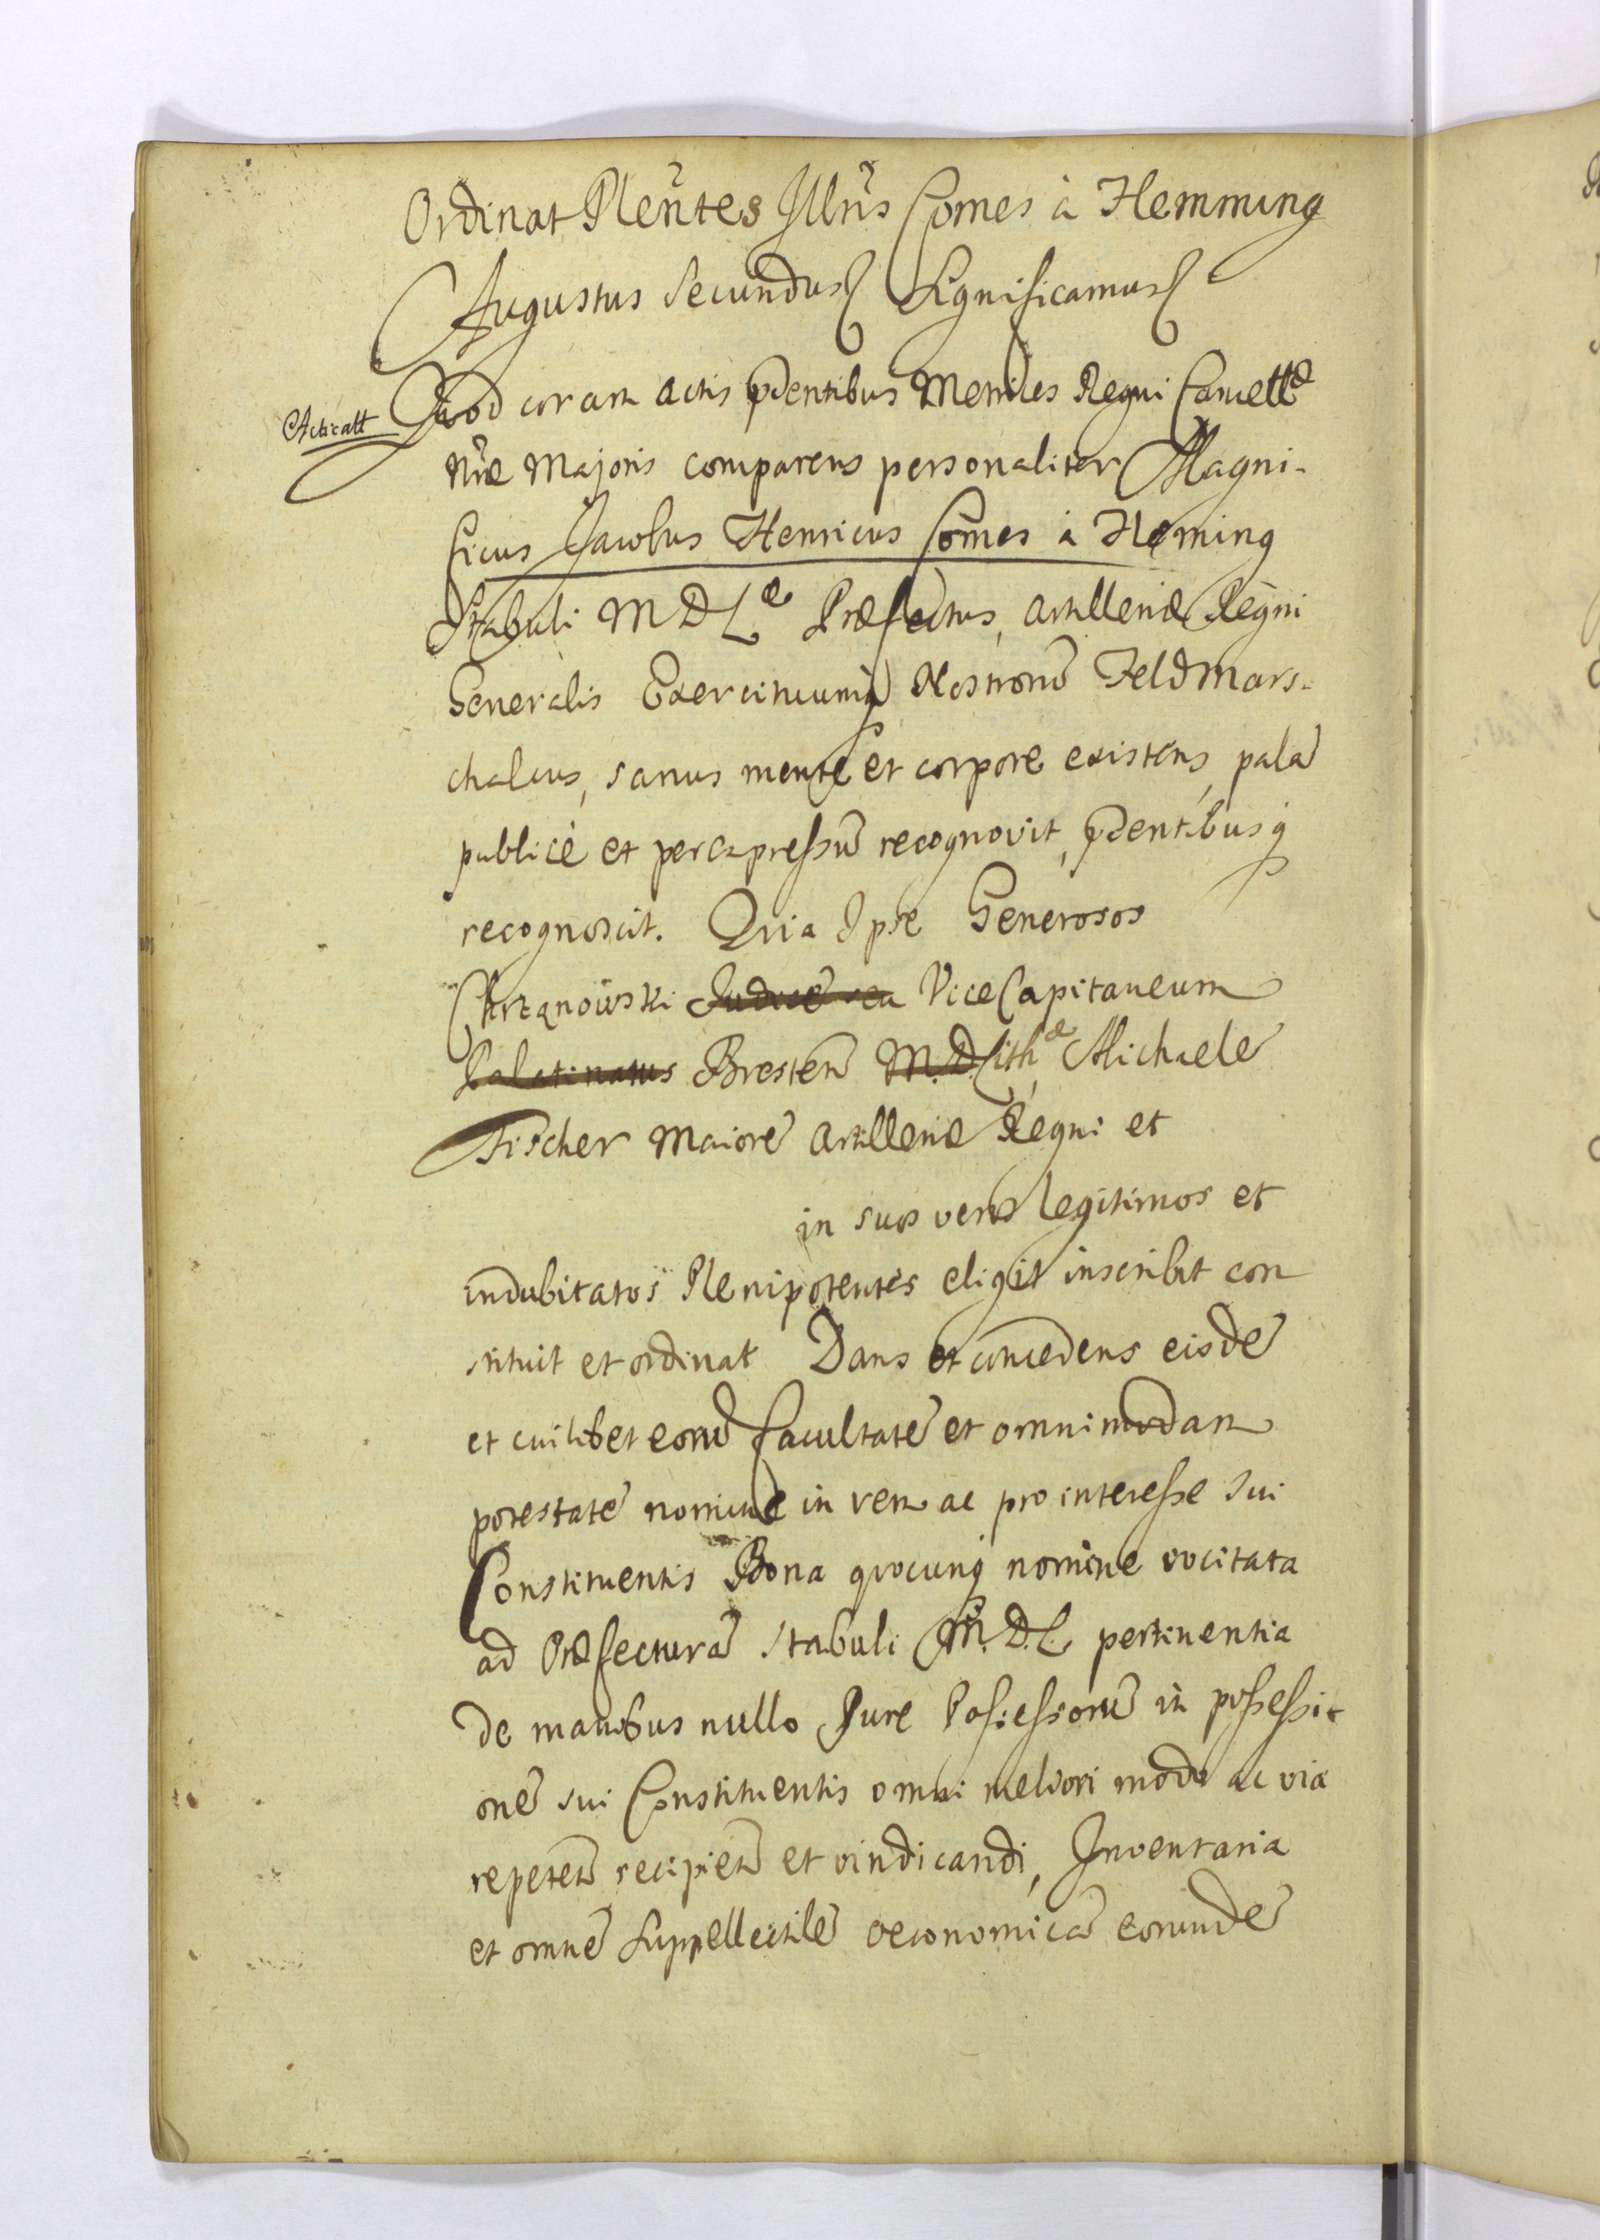 Ordinat Plen̄tes Illrīs Comes à Flemming
Augustus Secundus Significamus
Acticatt
Quod coram actis pñtibus Metrices Regni Cancellᵉ
Nrae Majoris comparens personaliter Magni-
ficus Jacobus Henricus Comes à Fleming
Stabuli M D Lᵉ Praefectus, Artilleriæ Regni
Generalis Exercituumq̃ Nostrorũ Feldmars-
chalcus, sanus mente et corpore existens, palã
publicè et per expressũ recognovit, pñtibusq̃
recognoscit. Quia Ipse Generosos
Chrzanowski Judicẽ seu Vice Capitaneum
Palatinatus Bresteñ M. D. Lithᵉ, Michaelẽ
Fischer Maiorẽ Artilleriæ Regni et
in suos veros legitimos et
indubitatos Plenipotentes eligit inscribit con
stituit et ordinat Dans et concedens eisdẽ
et cuilibet eorũ facultatẽ et omnimodam
potestatẽ nomine in rem ac pro interesse sui
Constituentis Bona quocunq̃ nomine vocitata
ad Præfecturã Stabuli M. D. L. pertinentia
de manibus nullo Jure Possessorũ in possessi-
onẽ sui Constituentis omni meliori modo ac via
repeteñ recipieñ et vindicandi, Inventaria
et omnẽ Suppellectilẽ oeconomicã eorundẽ